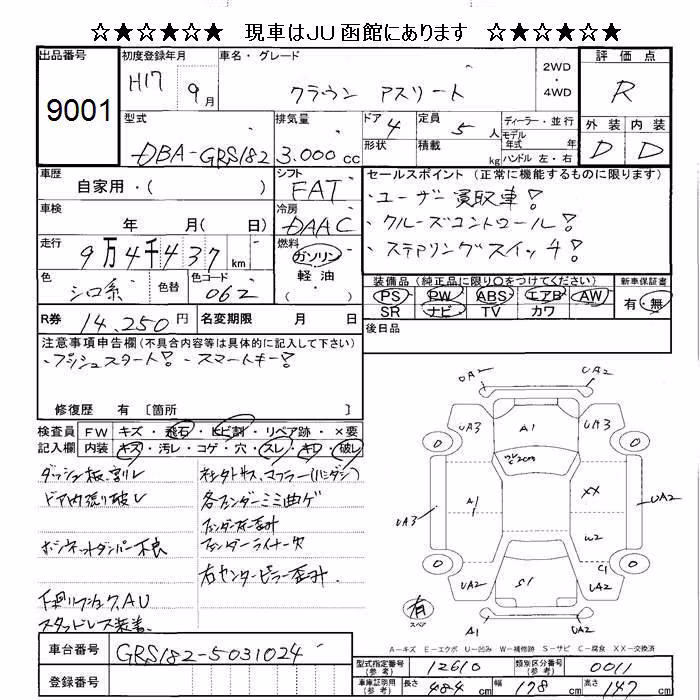 ☆★☆★☆★ 現車はJU函館にあります ☆★☆★☆★
出品番号
9001
初度登録年月
H17 9月
車名・グレード
クラウン アスリート
2WD
・
4WD
評価点
R
外装 内装
D D
型式
DBA-GRS182
排気量
3.000cc
ドア 4
形状
定員 5人
積載 kg
ディーラー・並行
モデル
年式 年
ハンドル 左・右
車歴
自家用・( )
シフト
FAT
車検
年 月( 日)
冷房
DAAC
セールスポイント (正常に機能するものに限ります)
・ユーザー買取車!
・クルーズコントロール!
・ステアリングスイッチ!
走行
9万4千437km
燃料
ガソリン
軽油
( )
色
シロ系
色替
色コード
062
装備品 (純正品に限り〇をつけてください)
PS PW ABS エアB AW
SR ナビ TV カワ
新車保証書
有・無
R券 14,250円
名変期限 月 日
後日品
注意事項申告欄(不具合内容等は具体的に記入して下さい)
・プッシュスタート! ・スマートキー!
修復歴 有 〔箇所 〕
検査員
記入欄
FW キズ・飛石・ヒビ割・リペア跡・×要
内装 キズ・汚レ・コゲ・穴・スレ・キレ・破レ
ダッシュ板割レ
ドア内張り破レ
ボンネットダンパー不良
スタッドレス装着
マフラー(ハンダシ)
各フェンダーミミ曲ゲ
フェンダー歪ミ
フェンダーライナー欠
右センターピラー歪ミ
UA2
UA2
UA3
A1
UA3
0
0
ワレ
A1
XX
UA3
UA2
W2
C1
0
0
UA2
S1
UA2
有
スペア
A1
UA2
A-キズ E-エクボ U-凹み W-補修跡 S-サビ C-腐食 XX-交換済
車台番号
GRS182-5031024
登録番号
型式指定番号
(参考)
12610
類別区分番号
(参考)
0011
車庫証明用
(参考)
長さ 484cm
幅 178cm
高さ 147cm